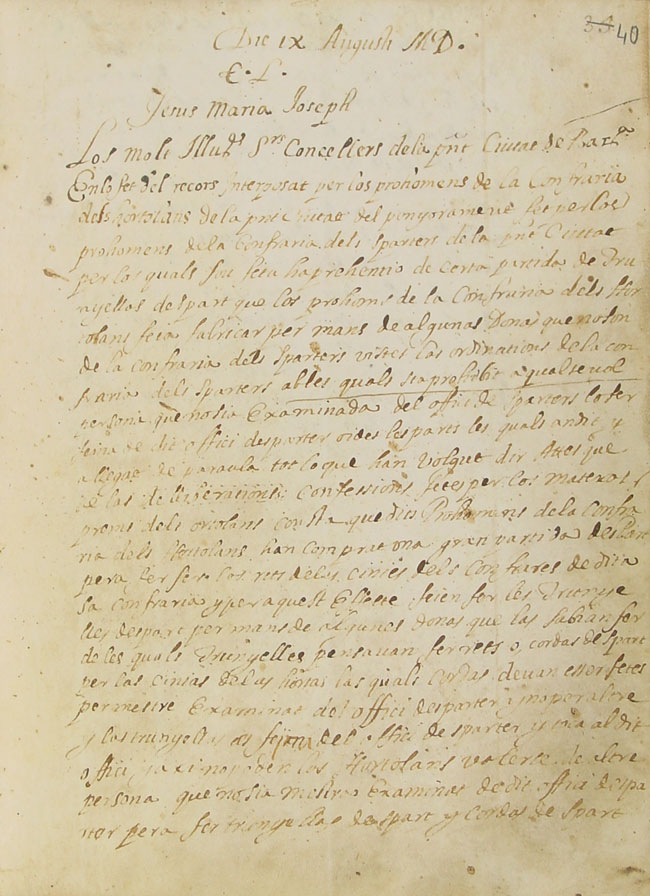 39 40
Die IX Augusti MD.
E. L.
Jesus Maria Joseph
Los Molt Illus Srs Concellers de la pnt Ciutat de Barna
En lo fet del recors interposat per los prohomens de la Confraria
dels hortolans de la pnt Ciutat del penyorament fet per los
prohomens de la Confraria dels Sparters de la pnt Ciutat
per los quals fou feta haprehentio de certa partida de Tru
nyellas de spart que los prohoms de la Confraria dels Hor
tolans feia fabricar per mans de algunas Donas que no son
de la confraria dels Sparters vistes las ordinations de la con
fraria dels Sparters ab les quals sta prohibit a qualsevol
persona que no sia Examinada del offici de Sparters lo fer
feina de dit offici de sparter oides les parts les quals an dit y
allegat de paraula tot lo que han volgut dir Attes que
de las deliberations Confessions fetes per los matexos
proms dels ortolans consta que dits Prohomens de la Confra
ria dels Hortolans han comprat una gran partida de spart
pera fer fer los rets de las cinies dels Confrares de dita
sa Confraria y per aquest effecte feien fer les Trunye
lles de spart per mans de algunes donas que las sabian fer
de les quals Trunyelles pensavan fer rets o cordas de spart
per las cinias de las hortas las quals cordas devan esser fetes
per mestre Examinat del offici de sparter y no per altre
y las trunyellas es fejna del offici de sparter y toca al dit
offici y axi no poden los Hortolans valerse de altre
persona que no sia mestre Examinat de dit offici de spa
rter pera fer trunyellas de spart y cordas de spart